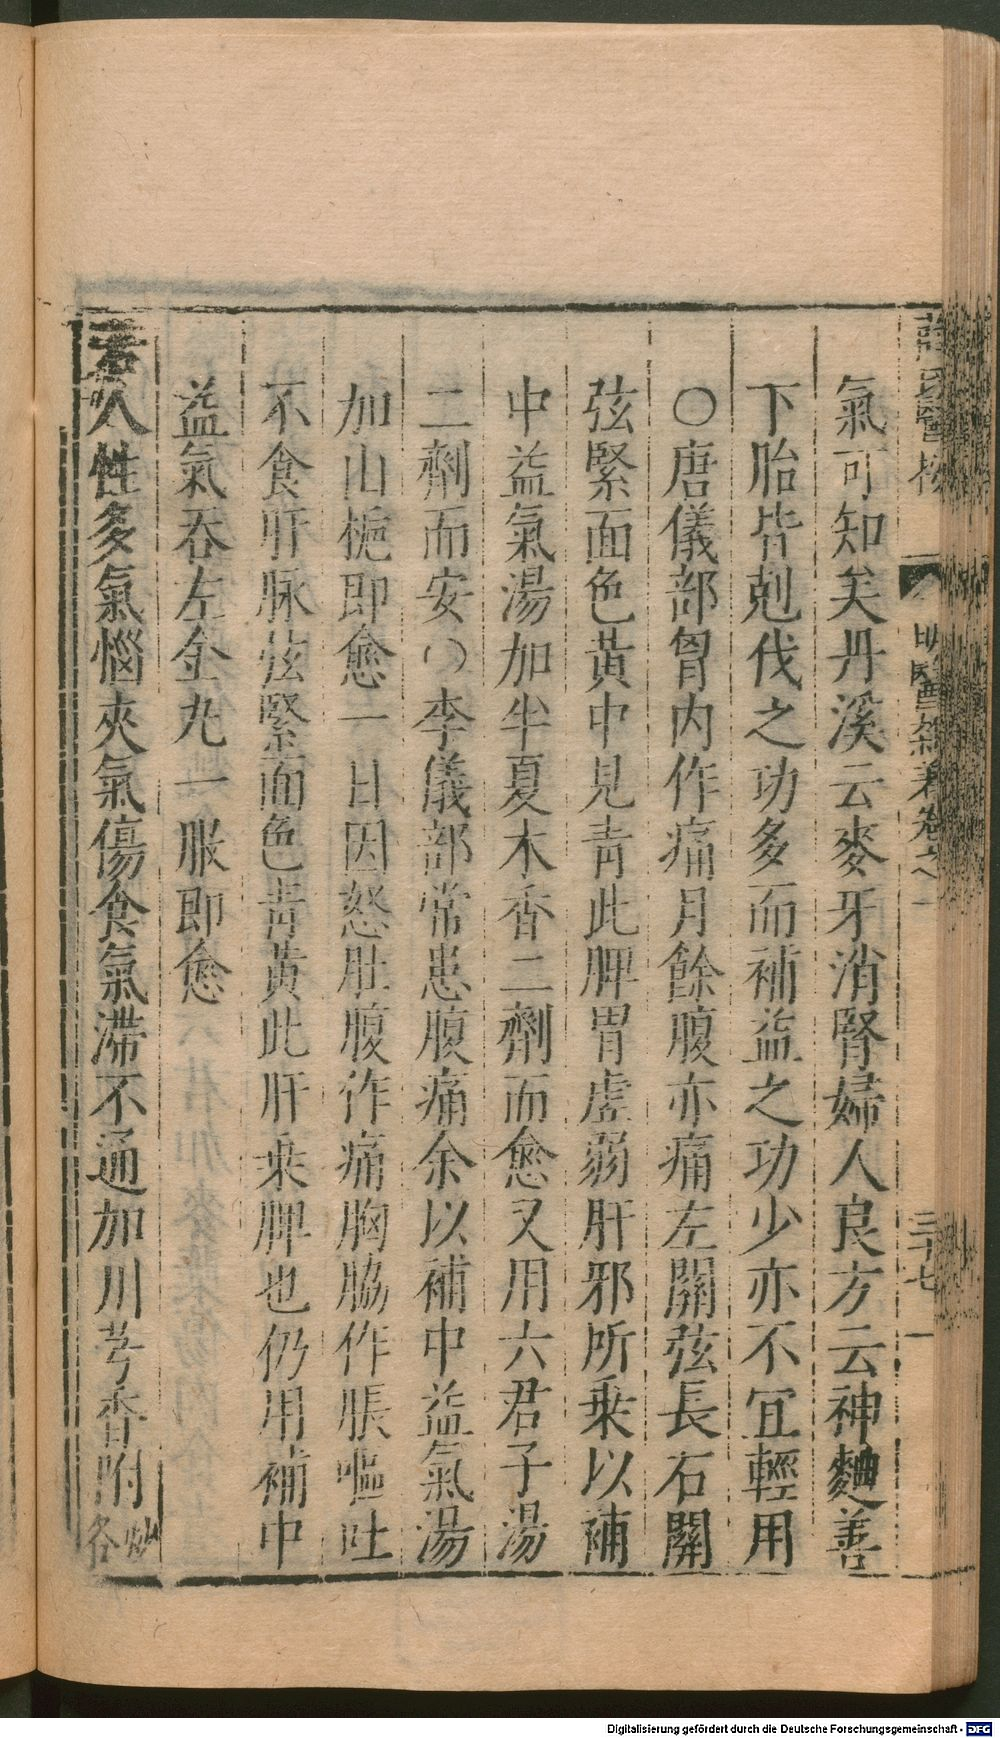 氣可知矣丹溪云麥牙消腎婦人良方云神麯善
下胎皆剋伐之功多而補益之功少亦不宜輕用
○唐儀部胷内作痛月餘腹亦痛左關弦長右關
弦緊面色黃中見青此脾胃虛弱肝邪所乘以補
中益氣湯加半夏木香二劑而愈又用六君子湯
二劑而安○李儀部常患腹痛余以補中益氣湯
加山梔即愈一日因怒肚腹作痛胸脇作脹嘔吐
不食肝脉弦緊面色青黃此肝乘脾也仍用補中
益氣吞左金丸一服即愈
若人性多氣惱夾氣傷食氣滯不通加川芎香附炒各
明醫雜著卷之一
三十七
Digitalisierung gefördert durch die Deutsche Forschungsgemeinschaft - DFG